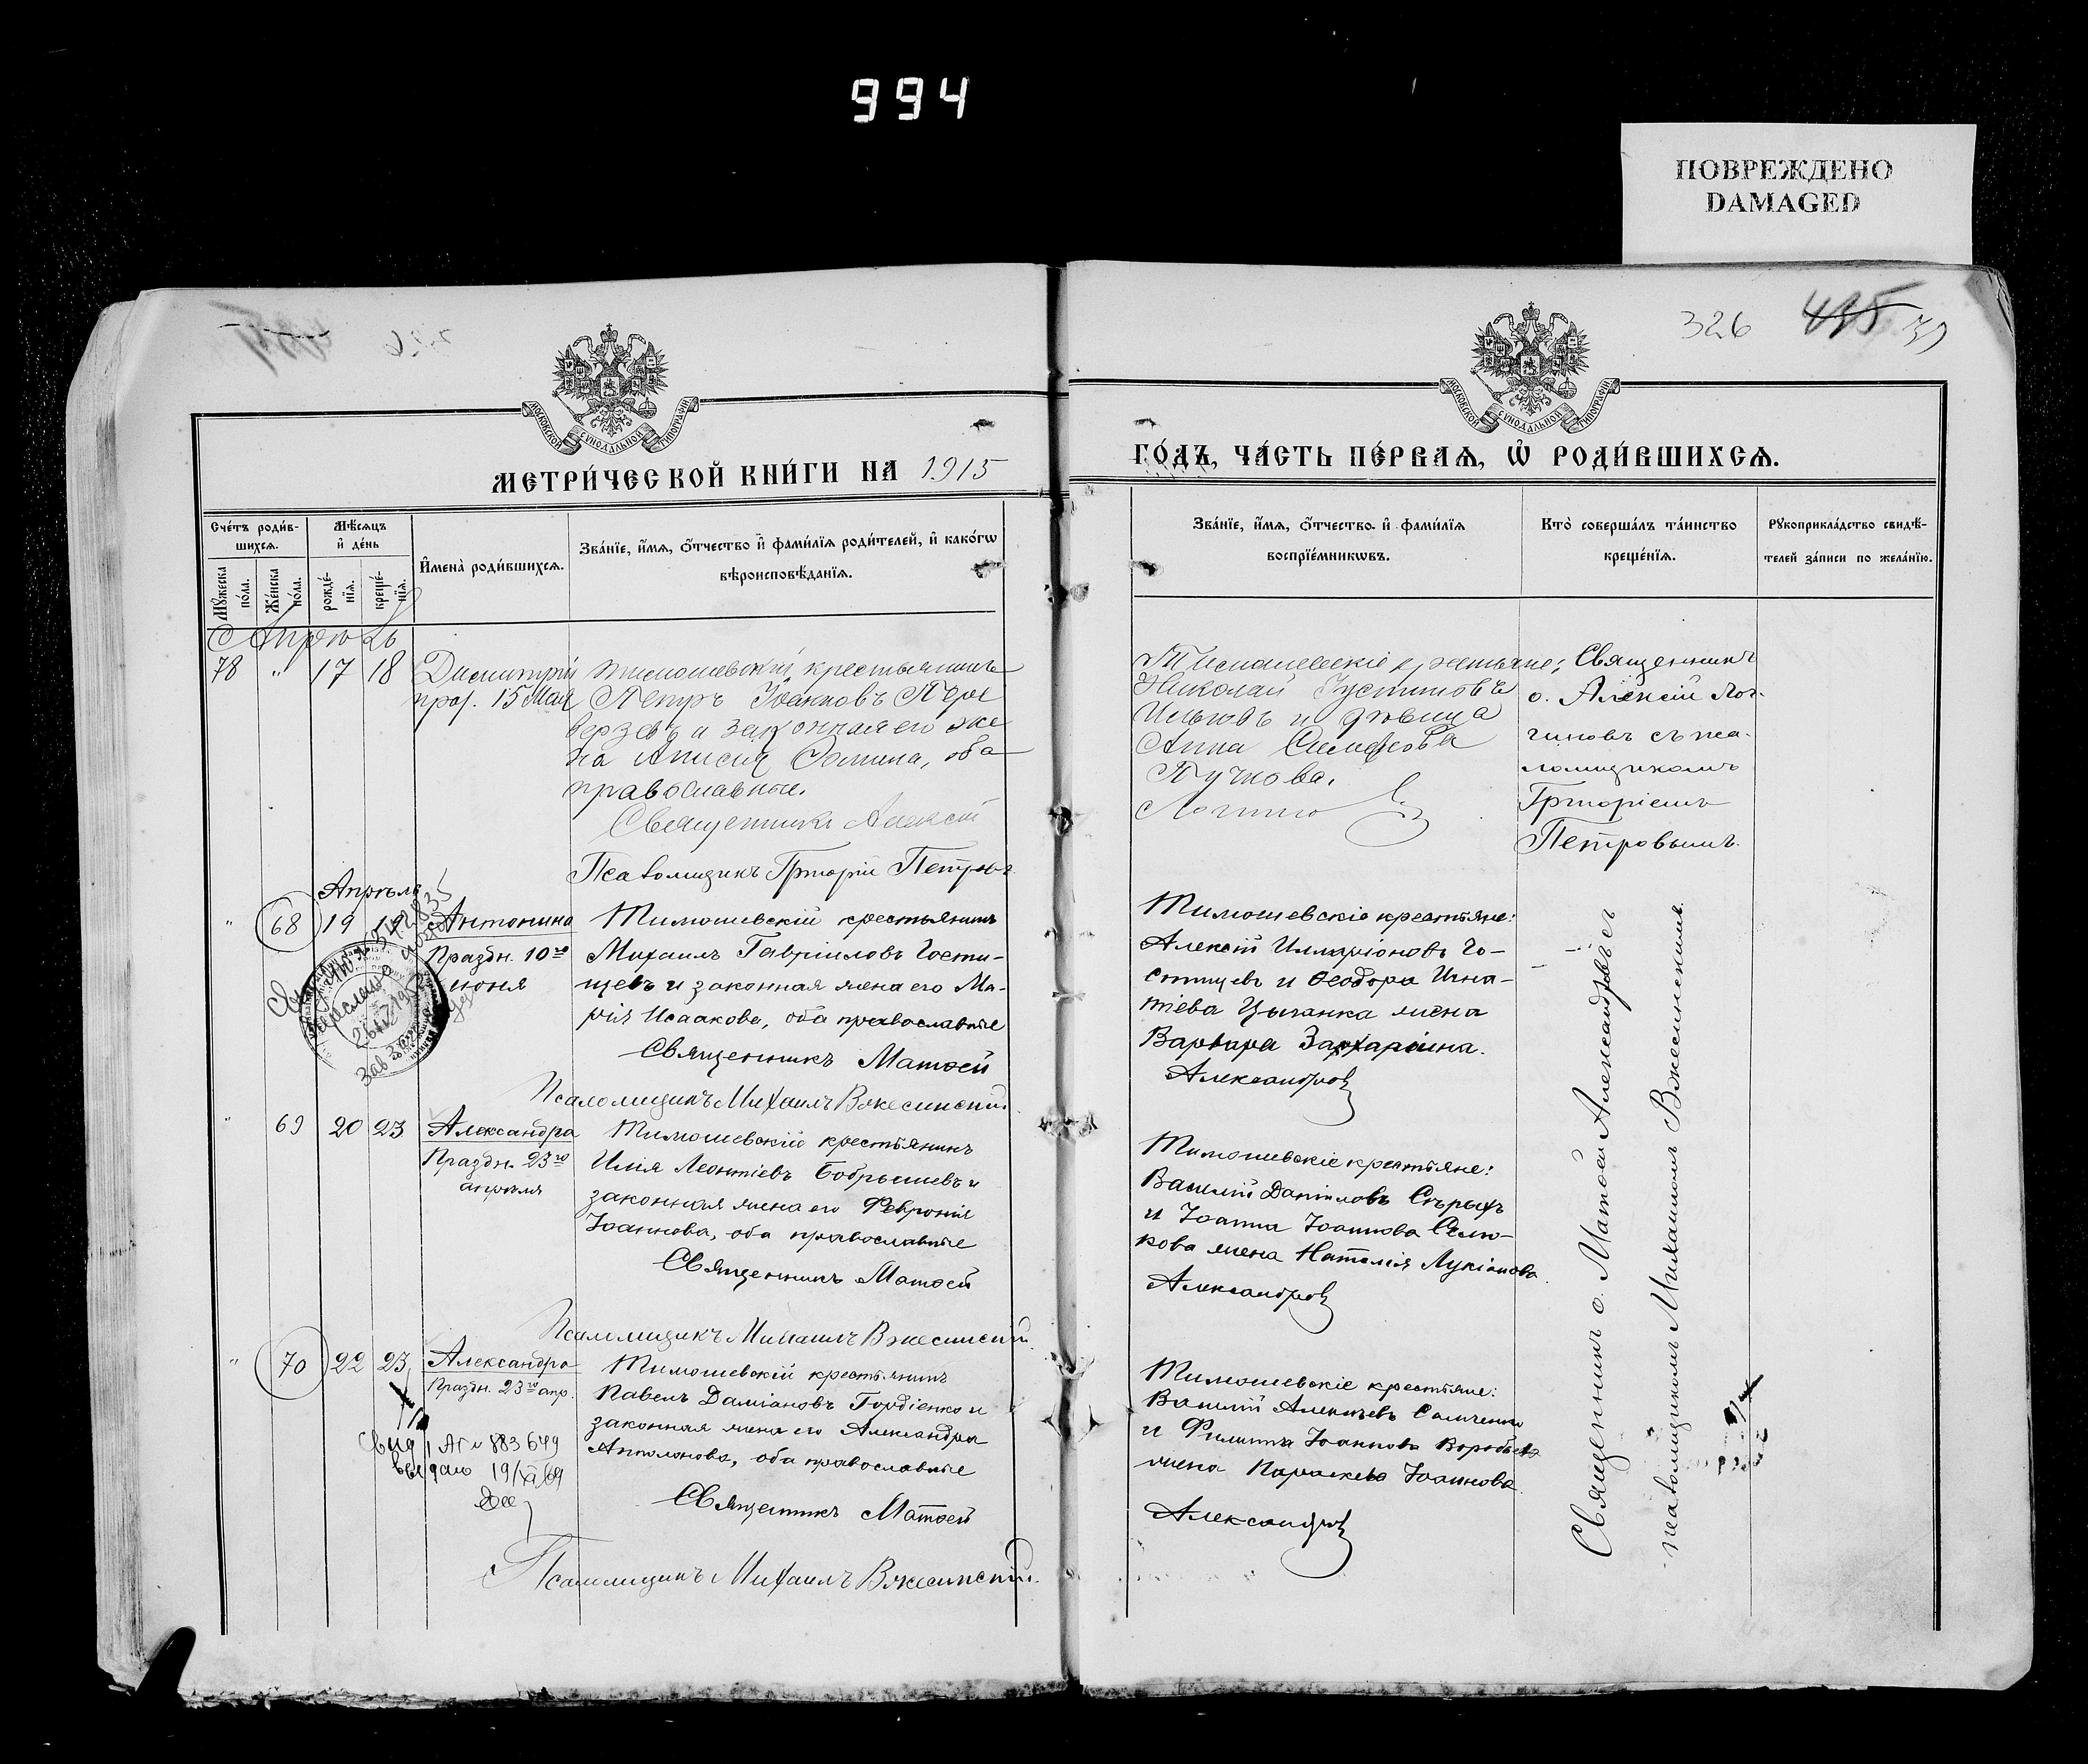 994
ПОВРЕЖДЕНО
DAMAGED
326 435
МОСКОВСКОЙ СѴНОДАЛЬНОЙ ТИПОГРАФІИ
МОСКОВСКОЙ СѴНОДАЛЬНОЙ ТИПОГРАФІИ
МЕТРИ́ЧЕСКОЙ КНИ́ГИ НА 1915
ГО́ДЪ, ЧА́СТЬ ПЕ́РВАѦ, Ѡ҆ РОДИ́ВШИХСѦ.
Сче́тъ роди́в-
шихсѧ.
Мꙋ́жеска по́ла.
Же́нска по́ла.
Мѣ́сѧцъ
и҆ де́нь
рожде́-
нїѧ.
креще́-
нїѧ.
И҆мена̀ роди́вшихсѧ.
Зва́нїе, и҆́мѧ, ѻ҆́тчество и҆ фами́лїѧ роди́телей, и҆ како́гѡ
вѣроисповѣ́данїѧ.
Зва́нїе, и҆́мѧ, ѻ҆́тчество и҆ фами́лїѧ
воспрїе́мникѡвъ.
Кто̀ соверша́лъ та́инство
креще́нїѧ.
Рꙋкоприкла́дство свидѣ́-
телей за́писи по жела́нїю.
Апрѣль
78 " 17 18 Димитрій
праз. 15 Мая
Тимошевскій крестьянинъ
Петръ Іоанновъ Пере
верзевъ и законная его же
на Анисія Ѳомина, оба
православные.
Священникъ Алексій
Псаломщикъ Григорій Петровъ
Тимошевскіе крестьяне:
Николай Іустиновъ
Ильинъ и дѣвица
Анна
Пучкова.
Логино
Священникъ
о. Алексій Лог-
гиновъ съ пса-
ломщикомъ
Григоріемъ
Петровымъ.
Апрѣль
" 68 19 19 Антонина
Праздн. 10го
іюня
Тимошевскій крестьянинъ
Михаилъ Гавріиловъ Гости-
щевъ и законная жена его Ма-
рія Исаакова, оба православные
Священникъ Матѳей
Псаломщикъ Михаилъ Вжесинскій
Тимошевскіе крестьяне:
Алексій Илларіоновъ Го-
стищевъ и Ѳеодора Игна-
тіева Цыганка жена
Варвара Захаріина.
Александровъ
" 69 20 23 Александра
Праздн. 23го
апрѣля
Тимошевскій крестьянинъ
Илія Леонтіевъ Бобрышевъ и
законная жена его Февронія
Іоаннова, оба православные
Священникъ Матѳей
Псаломщикъ Михаилъ Вжесинскій
Тимошевскіе крестьяне:
Василій Даніиловъ Сѣрыхъ
и Іоанна Іоаннова Селю-
кова жена Наталія Лукіанова
Александровъ
" 70 22 23 Александра
Праздн. 23го апр.
Тимошевскій крестьянинъ
Павелъ Даміановъ Гордіенко и
законная жена его Александра
Антонова, оба православные
Священникъ Матѳей
Псаломщикъ Михаилъ Вжесинскій.
Тимошевскіе крестьяне:
Василій Алексѣевъ Самченко
и Филиппа Іоаннова Воробьева
жена Параскева Іоаннова
Александровъ
Священникъ о. Матѳей Александровъ съ
псаломщикомъ Михаиломъ Вжесинскимъ.
свид 1 АГ № 883649
выдано 19/XI 69